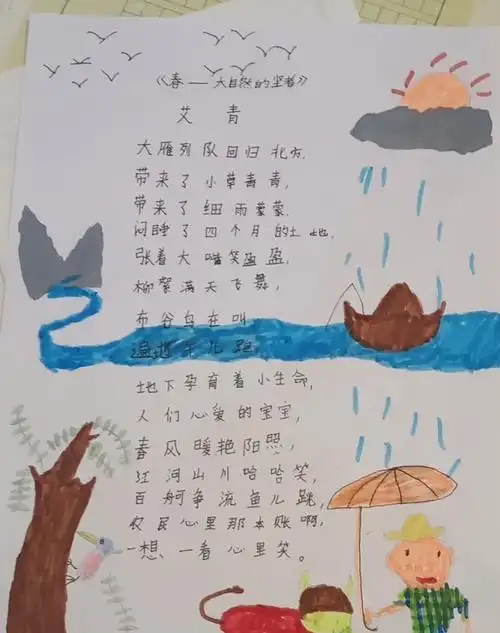 《春——大自然的坚者》
艾 青
大雁列队回归北方,
带来了小草青青,
带来了细雨蒙蒙.
闷睡了四个月的土地,
张着大嘴笑盈盈,
柳絮满天飞舞,
布谷鸟在叫
遍地牛儿跑,
地下孕育着小生命,
人们心爱的宝宝,
春风暖艳阳照,
江河山川哈哈笑,
百舸争流鱼儿跳,
农民心里那本账啊,
一想、一看心里笑。